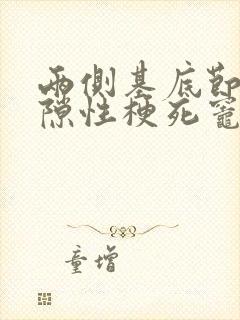 兩側基底節
隙性梗死竈
童增